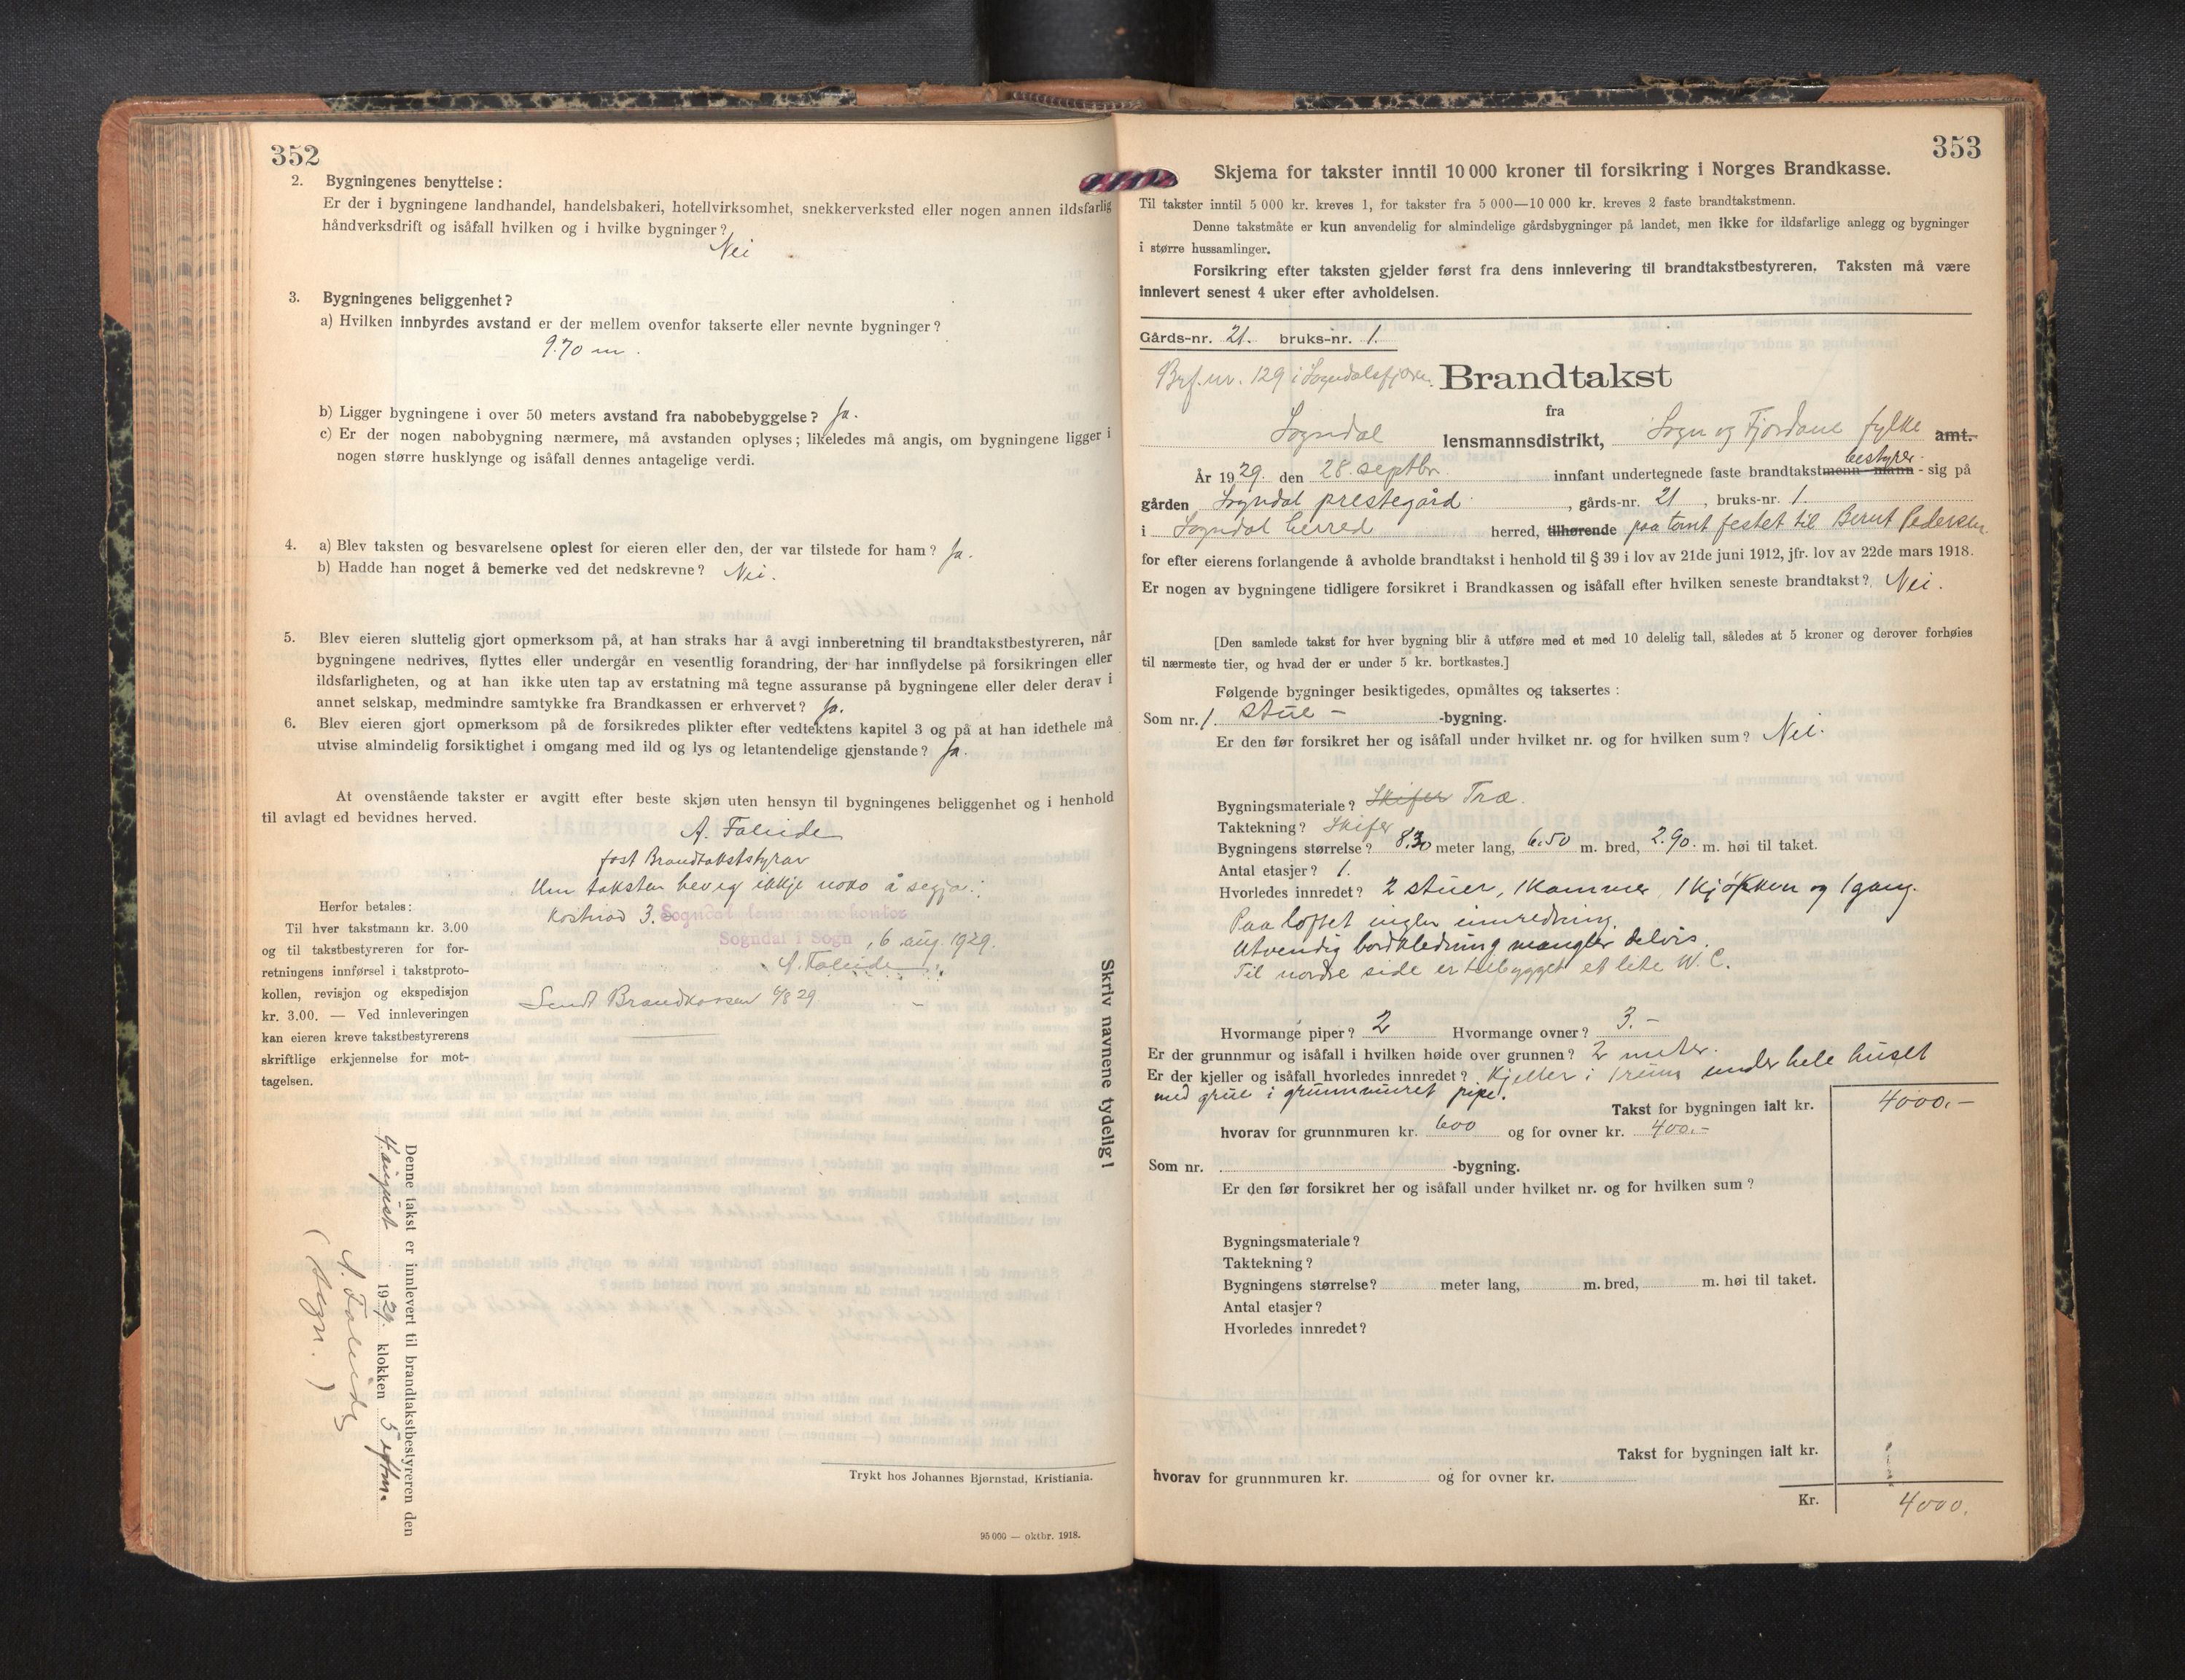 352
2. Bygningenes benyttelse :
Er der i bygningene landhandel, handelsbakeri, hotellvirksomhet, snekkerverksted eller nogen annen ildsfarlig
håndverksdrift og isåfall hvilken og i hvilke bygninger?
Nei
3. Bygningenes beliggenhet?
a) Hvilken innbyrdes avstand er der mellem ovenfor takserte eller nevnte bygninger?
9.70 m.
b) Ligger bygningene i over 50 meters avstand fra nabobebyggelse? Ja.
c) Er der nogen nabobygning nærmere, må avstanden oplyses; likeledes må angis, om bygningene ligger i
nogen større husklynge og isåfall dennes antagelige verdi.
4. a) Blev taksten og besvarelsene oplest for eieren eller den, der var tilstede for ham? Ja.
b) Hadde han noget å bemerke ved det nedskrevne? Nei.
5. Blev eieren sluttelig gjort opmerksom på, at han straks har å avgi innberetning til brandtakstbestyreren, når
bygningene nedrives, flyttes eller undergår en vesentlig forandring, der har innflydelse på forsikringen eller
ildsfarligheten, og at han ikke uten tap av erstatning må tegne assuranse på bygningene eller deler derav i
annet selskap, medmindre samtykke fra Brandkassen er erhvervet? Ja.
6. Blev eieren gjort opmerksom på de forsikredes plikter efter vedtektens kapitel 3 og på at han idethele må
utvise almindelig forsiktighet i omgang med ild og lys og letantendelige gjenstande? Ja.
At ovenstående takster er avgitt efter beste skjøn uten hensyn til bygningenes beliggenhet og i henhold
til avlagt ed bevidnes herved.
A. Faleide
fast Brandtakststyrar
Um taksten hev eg ikkje noko å segja.
Kostnad 3. Sogndal lensmannskontor
Sogndal i Sogn, 6 aug. 1929.
A. Faleide
Sendt Brandkassen 6/8 29
Herfor betales:
Til hver takstmann kr. 3.00
og til takstbestyreren for for-
retningens innførsel i takstproto-
kollen, revisjon og ekspedisjon
kr. 3.00. — Ved innleveringen
kan eieren kreve takstbestyrerens
skriftlige erkjennelse for mot-
tagelsen.
Denne takst er innlevert til brandtakstbestyreren den
4. august 1929. klokken 5 eftm.
A. Faleide
(sign.)
Skriv navnene tydelig!
Trykt hos Johannes Bjørnstad, Kristiania.
95 000 — oktbr. 1918.
353
Skjema for takster inntil 10 000 kroner til forsikring i Norges Brandkasse.
Til takster inntil 5 000 kr. kreves 1, for takster fra 5 000—10 000 kr. kreves 2 faste brandtakstmenn.
Denne takstmåte er kun anvendelig for almindelige gårdsbygninger på landet, men ikke for ildsfarlige anlegg og bygninger
i større hussamlinger.
Forsikring efter taksten gjelder først fra dens innlevering til brandtakstbestyreren. Taksten må være
innlevert senest 4 uker efter avholdelsen.
Gårds-nr. 21. bruks-nr. 1.
Brf. nr. 129 i Sogndalsfjøren. Brandtakst
fra
Sogndal lensmannsdistrikt, Sogn og Fjordane fylke amt.
bestyrer.
År 1929. den 28. septbr. innfant undertegnede faste brandtakstmenn - mann - sig på
gården Sogndal prestegård, gårds-nr. 21, bruks-nr. 1.
i Sogndal herred herred, tilhørende paa tomt festet til Bernt Pedersen
for efter eierens forlangende å avholde brandtakst i henhold til § 39 i lov av 21de juni 1912, jfr. lov av 22de mars 1918.
Er nogen av bygningene tidligere forsikret i Brandkassen og isåfall efter hvilken seneste brandtakst? Nei.
[Den samlede takst for hver bygning blir å utføre med et med 10 delelig tall, således at 5 kroner og derover forhøies
til nærmeste tier, og hvad der er under 5 kr. bortkastes.]
Følgende bygninger besiktigedes, opmåltes og taksertes :
Som nr. 1. Stue - -bygning.
Er den før forsikret her og isåfall under hvilket nr. og for hvilken sum? Nei.
Bygningsmateriale? Skifer Træ.
Taktekning? Skifer
Bygningens størrelse? 8.30 meter lang, 6.50 m. bred, 2.90. m. høi til taket.
Antal etasjer? 1.
Hvorledes innredet? 2 stuer, 1 kammer, 1 kjøkken og 1 gang.
Paa loftet ingen innredning.
Utvendig bordkledning mangler delvis.
Til nordre side er tilbygget et lite W. C.
Hvormange piper? 2 Hvormange ovner? 3.-
Er der grunnmur og isåfall i hvilken høide over grunnen? 2 meter.
Er der kjeller og isåfall hvorledes innredet? Kjeller i 1 rum under hele huset
med grue i grunnmuret pipe.
Takst for bygningen ialt kr. 4000.-
hvorav for grunnmuren kr. 600 og for ovner kr. 400.-
Som nr. -bygning.
Er den før forsikret her og isåfall under hvilket nr. og for hvilken sum?
Bygningsmateriale?
Taktekning?
Bygningens størrelse? meter lang, m. bred, m. høi til taket.
Antal etasjer?
Hvorledes innredet?
Takst for bygningen ialt kr.
hvorav for grunnmuren kr. og for ovner kr.
Kr. 4000.